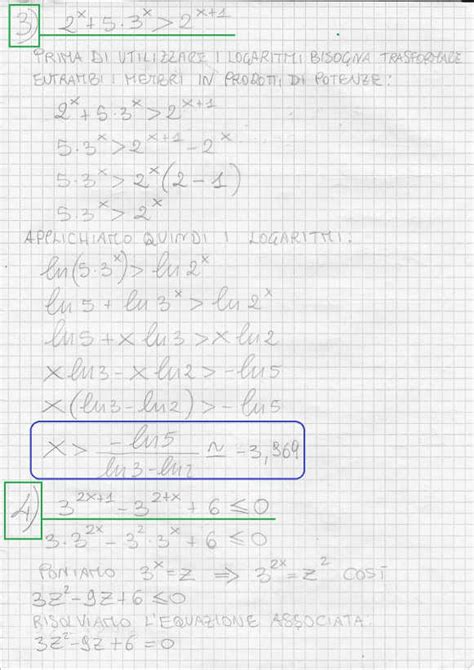 3) 2^x+5·3^x>2^{x+1}
PRIMA DI UTILIZZARE I LOGARITMI BISOGNA TRASFORMARE
ENTRAMBI I MEMBRI IN PRODOTTI DI POTENZE:
2^x+5·3^x>2^{x+1}
5·3^x>2^{x+1}-2^x
5·3^x>2^x(2-1)
5·3^x>2^x
APPLICHIAMO QUINDI I LOGARITMI:
ln(5·3^x)>ln2^x
ln5+ln3^x>ln2^x
ln5+xln3>xln2
xln3-xln2>-ln5
x(ln3-ln2)>-ln5
x>\frac{-ln5}{ln3-ln2}≃-3,969
4) 3^{2x+1}-3^{2+x}+6≤0
3·3^{2x}-3^2·3^x+6≤0
PONIAMO 3^x=z ⇒ 3^{2x}=z^2 COSÌ
3z^2-9z+6≤0
RISOLVIAMO L'EQUAZIONE ASSOCIATA:
3z^2-9z+6=0